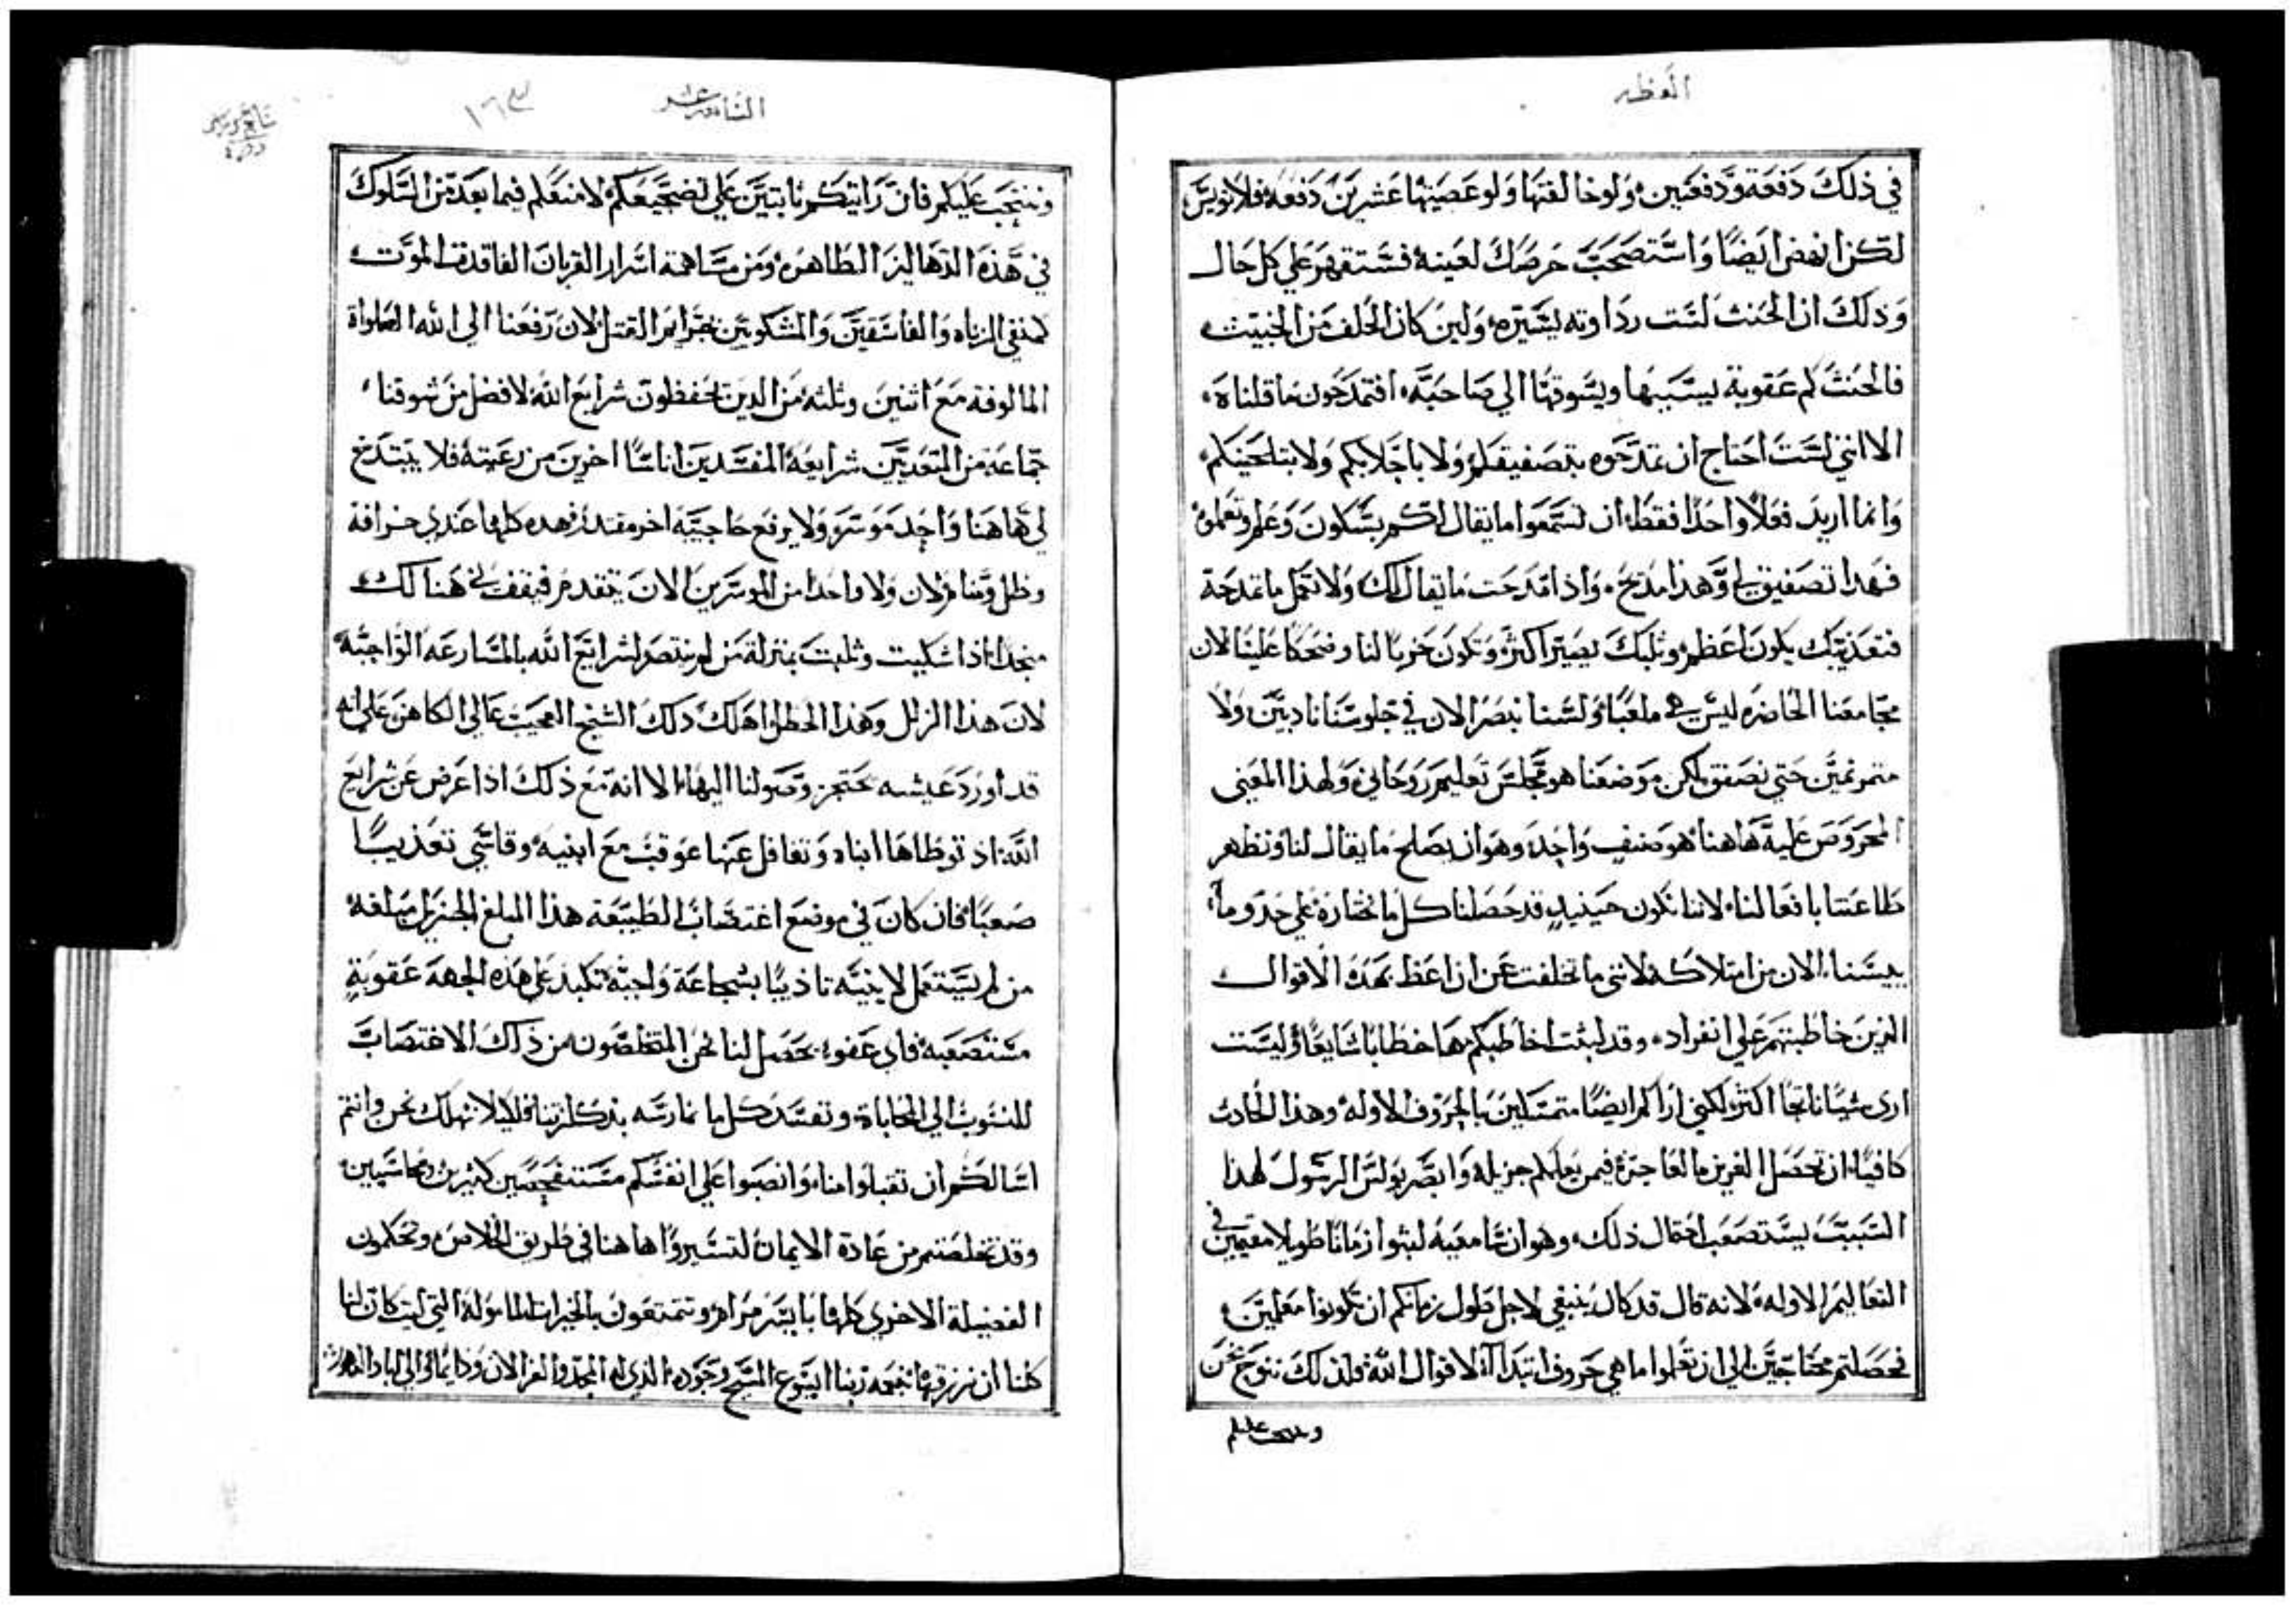 العظه
في ذلك دفعة ودفعتين ولو خالفتها ولو عصيتها عشرين دفعه فلا تويس
لكن انهض ايضًا واستصحب حرصك لعينه فستقهر علي كل حال
وذلك ان الحنث لست رداوته يسيره ولين كان الحلف من الخبيث
فالحنث كم عقوبة يسببها ويسوقها الي صاحبه افتمدحون ما قلناه
الا انني لست احتاج ان تمدحوه بتصفيقكم ولا باجلابكم ولا بتلحينكم
وانما اريد فعلاً واحدًا فقط ان تسمعوا ما يقال لكم بسكون وعلم وتعلمو
فهذا تصفيق لي وهذا مديح واذا مدحت ما يقال لك ولا تعمل ما تمدحه
فتعذيبك يكون اعظم وثلبك يصير اكثر وتكون خزيًا لنا وضحكًا علينا لان
مجامعنا الحاضره ليس هي ملعبًا ولسنا نبصر الان في جلوسنا ناديين ولا
مترنمين حتي نصفق لكن موضعنا هو مجلس تعليم روحاني ولهذا المعني
المحروص عليه هاهنا هو صنف واحد وهو ان يصلح ما يقال لنا ونظهر
طاعتنا بافعالنا لاننا نكون حينيدٍ قد حصلنا كل ما نختاره علي حد وما
ييسنا الان من امتلاكه لانني ما تخلفت عن ان اعظ بهذه الاقوال
الذين خاطبتهم علي انفراد وقد لبثت اخاطبكم بها خطابًا شايعًا وليست
اري شيًا ناتجًا اكثر لكني اراكم ايضًا متمسكين بالحروف الاوله وهذا الحادث
كافيًا ان تحصل الغريزه العاجزه فيمن يعلمكم جزيله وابصر بولس الرسول لهذا
السبب يستصعب احتمال ذلك وهو ان سامعيه لبثوا زمانًا طويلا مقيمين في
التعاليم الاوله لانه قال قد كان ينبغي لاجل طول زمانكم ان تكونوا معلمين
فحصلتم محتاجين الي ان تعلموا ما هي حروف ابتداآ لاقوال الله فلذلك ننوح نحن
وننتحب عليكم
السادسه عشر
١٦٣
وننتحب عليكم فان رايتكم ثابتين علي تضجيعكم لامنعكم فيما بعد من السلوك
في هذه الدهاليز الطاهره ومن مساهمة اسرار القربان الفاقدة الموت
كمنعي الزناه والفاسقين والمشكوين بجرايم القتل لان رفعنا الي الله الصلواة
المالوفه مع اثنين وثلثه من الدين يحفظون شرايع الله لافضل من سوقنا
جماعة من المتعديين شرايعه المفسدين اناسًا اخرين من رعيته فلا يبتدخ
لي هاهنا واحد موسر ولا يرفع حاجبيه اخر مقتدر فهذه كلها عندي خرافة
وظل ومنام لان ولا واحدا من الموسرين الان يتقدم فيقف في هنالك
منجدًا اذا شكيت وثلبت بمنزلة من لم ينتصر لشرايع الله بالمسارعه الواجبه
لان هذا الزلل وهذا الخطا اهلك ذلك الشيخ العجيب عالي الكاهن علي انه
قد اورد عيشه تحتجز وصولنا اليها الا انه مع ذلك اذا عرض عن شرايع
الله اذ توطاها ابناه وتغافل عنها عوقب مع ابنيه وقاسي تعذيبًا
صعبًا فان كان في موضع اغتصاب الطبيعه هذا المبلغ الجزيل مبلغه
من لم يستعمل لابنيه تاديبًا بشجاعة واجبه تكبد علي هذه الجهه عقوبة
مستصعبه فاي عفو يحصل لنا نحن المتخلصون من ذلك الاغتصاب
المنسوب الي المحاباة ونفسد كل ما نمارسه بتركنا زينا فليلا نهلك نحن وانتم
اسالكم ان تقبلوا منا وانصبوا علي انفسكم مستفحصين كثيرين ومحاسبين
وقد تخلصتم من عادة الايمان لتسيروا هاهنا في طريق الخلاص وتحكمون
الفضيلة الاخري كلها بايسر مرام وتتمتعون بالخيرات الماموله التي ليت كان لنا
كلنا ان نرزقها بنعمه ربنا ايسوع المسيح وجوده الذي له المجد والعز الان ودايمًا والي اباد الدهور